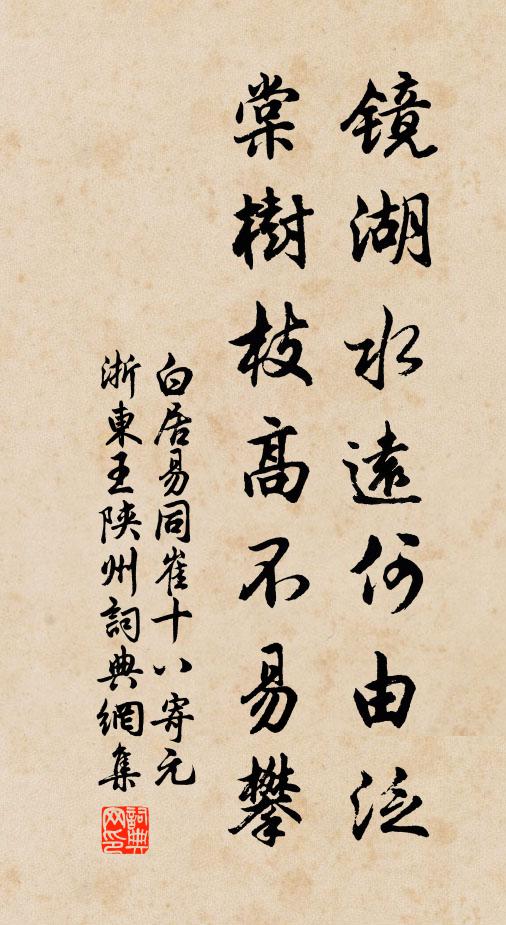 鏡湖水遠何由泛
棠樹枝高不易攀
白居易同崔十八寄元
浙東王陝州詞典網集
詞典网印